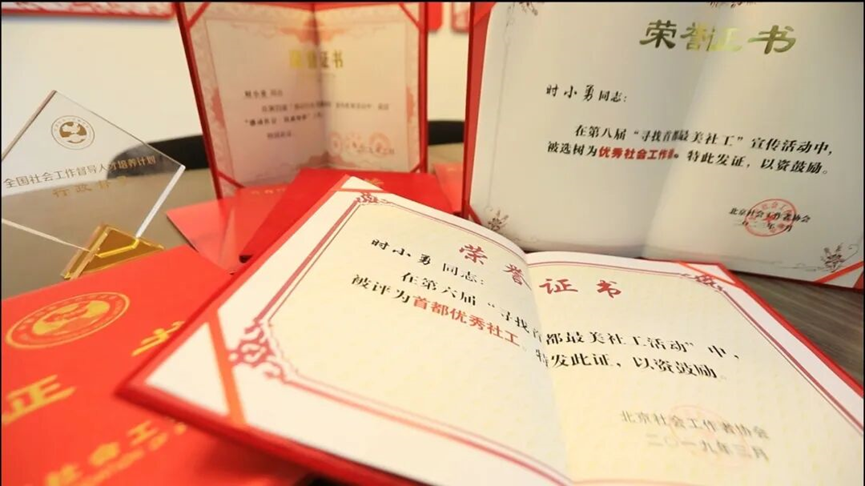 荣誉证书
时小勇同志：
在第八届“寻找首都最美社工”宣传活动中，
被选树为优秀社会工作者。特此发证，以资鼓励。
北京社会工作者协会
荣誉证书
全国社会工作督导人才培养计划
荣誉证书
时小勇同志：
在第六届“寻找首都最美社工活动”中，
被评为首都优秀社工，特发此证，以资鼓励。
北京社会工作者协会
二〇一九年三月
证
社会工